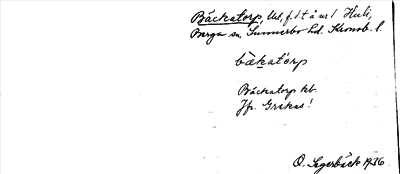 Bäckatorp, Utd. f. 1 t å nr 1 Hult,
Berga sn. Sunnerbo hd. Kronob. l.
bäkatorp
Bäckatorp kb.
Jfr. Gråkas!
O. Segerbäck 1936